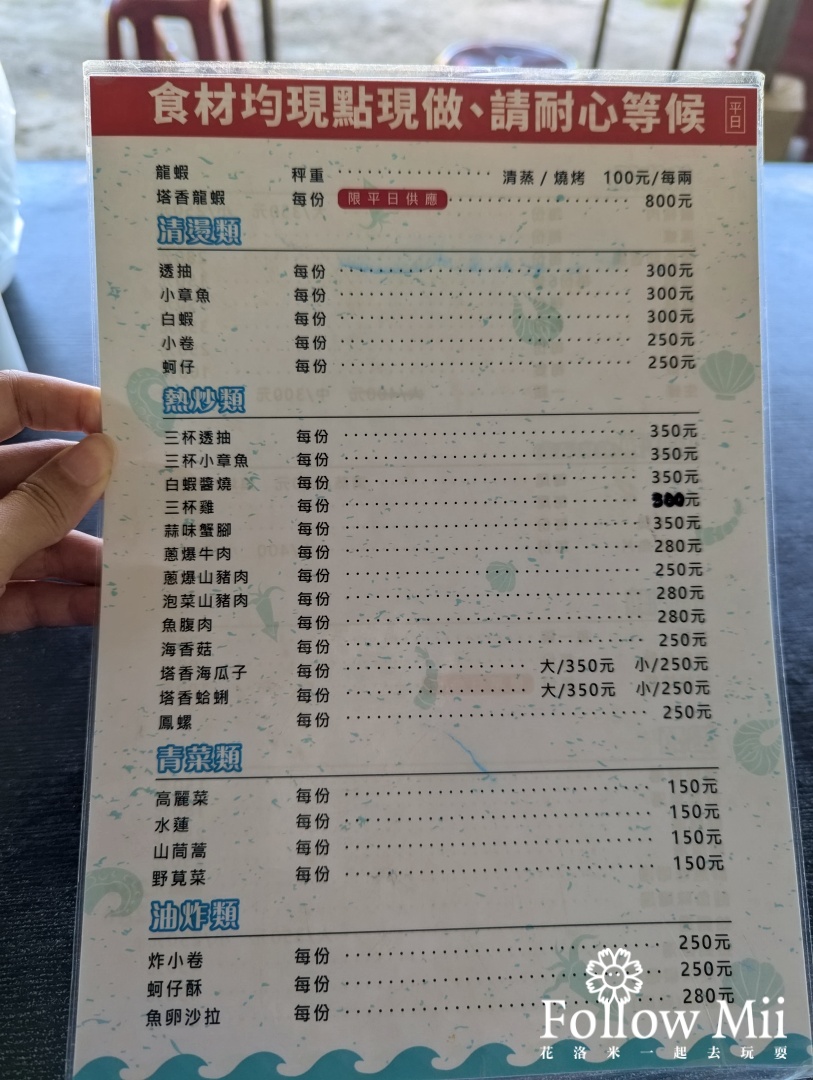 食材均現點現做、請耐心等候 平日
龍蝦 秤重 清蒸 / 燒烤 100元/每兩
塔香龍蝦 每份 限平日供應 800元
清燙類
透抽 每份 300元
小章魚 每份 300元
白蝦 每份 300元
小卷 每份 250元
蚵仔 每份 250元
熱炒類
三杯透抽 每份 350元
三杯小章魚 每份 350元
白蝦醬燒 每份 350元
三杯雞 每份 元
蒜味蟹腳 每份 350元
蔥爆牛肉 每份 280元
蔥爆山豬肉 每份 250元
泡菜山豬肉 每份 280元
魚腹肉 每份 280元
海香菇 每份 250元
塔香海瓜子 每份 大/350元 小/250元
塔香蛤蜊 每份 大/350元 小/250元
鳳螺 每份 250元
青菜類
高麗菜 每份 150元
水蓮 每份 150元
山茼蒿 每份 150元
野莧菜 每份 150元
油炸類
炸小卷 每份 250元
蚵仔酥 每份 250元
魚卵沙拉 每份 280元
Follow Mii
花洛米一起去玩耍